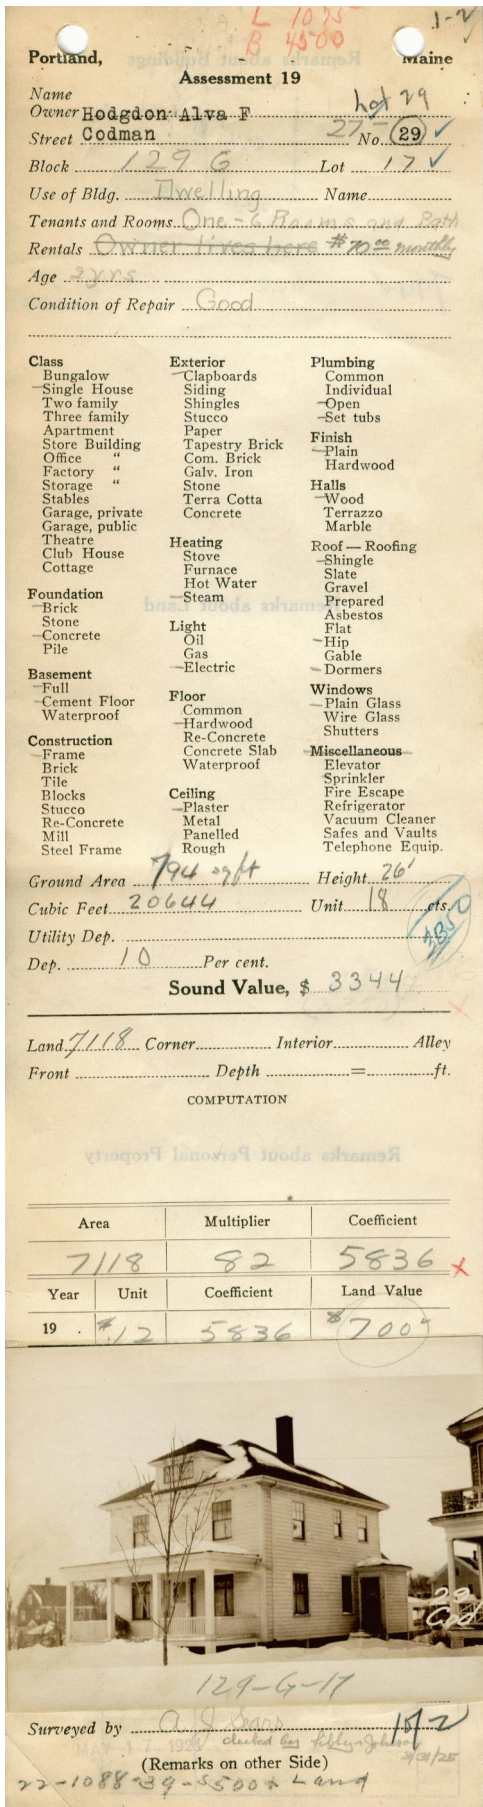 L 1075
B 4500
1-2
Portland, Maine
Assessment 19
Name
Lot 29
Owner Hodgdon Alva F
Street Codman 27- No. 29
Block 129 G Lot 17
Use of Bldg. Dwelling Name
Tenants and Rooms One - 6 Rooms and Bath
Rentals Owner lives here $70.00 monthly
Age 2 yrs
Condition of Repair Good
Class
Bungalow
Single House
Two family
Three family
Apartment
Store Building
Office "
Factory "
Storage "
Stables
Garage, private
Garage, public
Theatre
Club House
Cottage
Foundation
Brick
Stone
Concrete
Pile
Basement
Full
Cement Floor
Waterproof
Construction
Frame
Brick
Tile
Blocks
Stucco
Re-Concrete
Mill
Steel Frame
Exterior
Clapboards
Siding
Shingles
Stucco
Paper
Tapestry Brick
Com. Brick
Galv. Iron
Stone
Terra Cotta
Concrete
Heating
Stove
Furnace
Hot Water
Steam
Light
Oil
Gas
Electric
Floor
Common
Hardwood
Re-Concrete
Concrete Slab
Waterproof
Ceiling
Plaster
Metal
Panelled
Rough
Plumbing
Common
Individual
Open
Set tubs
Finish
Plain
Hardwood
Halls
Wood
Terrazzo
Marble
Roof — Roofing
Shingle
Slate
Gravel
Prepared
Asbestos
Flat
Hip
Gable
Dormers
Windows
Plain Glass
Wire Glass
Shutters
Miscellaneous
Elevator
Sprinkler
Fire Escape
Refrigerator
Vacuum Cleaner
Safes and Vaults
Telephone Equip.
Ground Area 794 sq ft Height 26'
Cubic Feet 20644 Unit 18 cts.
Utility Dep. 3850
Dep. 10 Per cent.
Sound Value, $ 3344
Land 7118 Corner Interior Alley
Front Depth = ft.
COMPUTATION
Remarks about Personal Property
Area Multiplier Coefficient
7118 82 5836 x
Year Unit Coefficient Land Value
19 $.12 5836 $700
29
Cod
129-G-17
Surveyed by A J Sears 15/2
checked by Libby & Johnson
3/31/25
(Remarks on other Side)
22-1088-39-5500 + Land